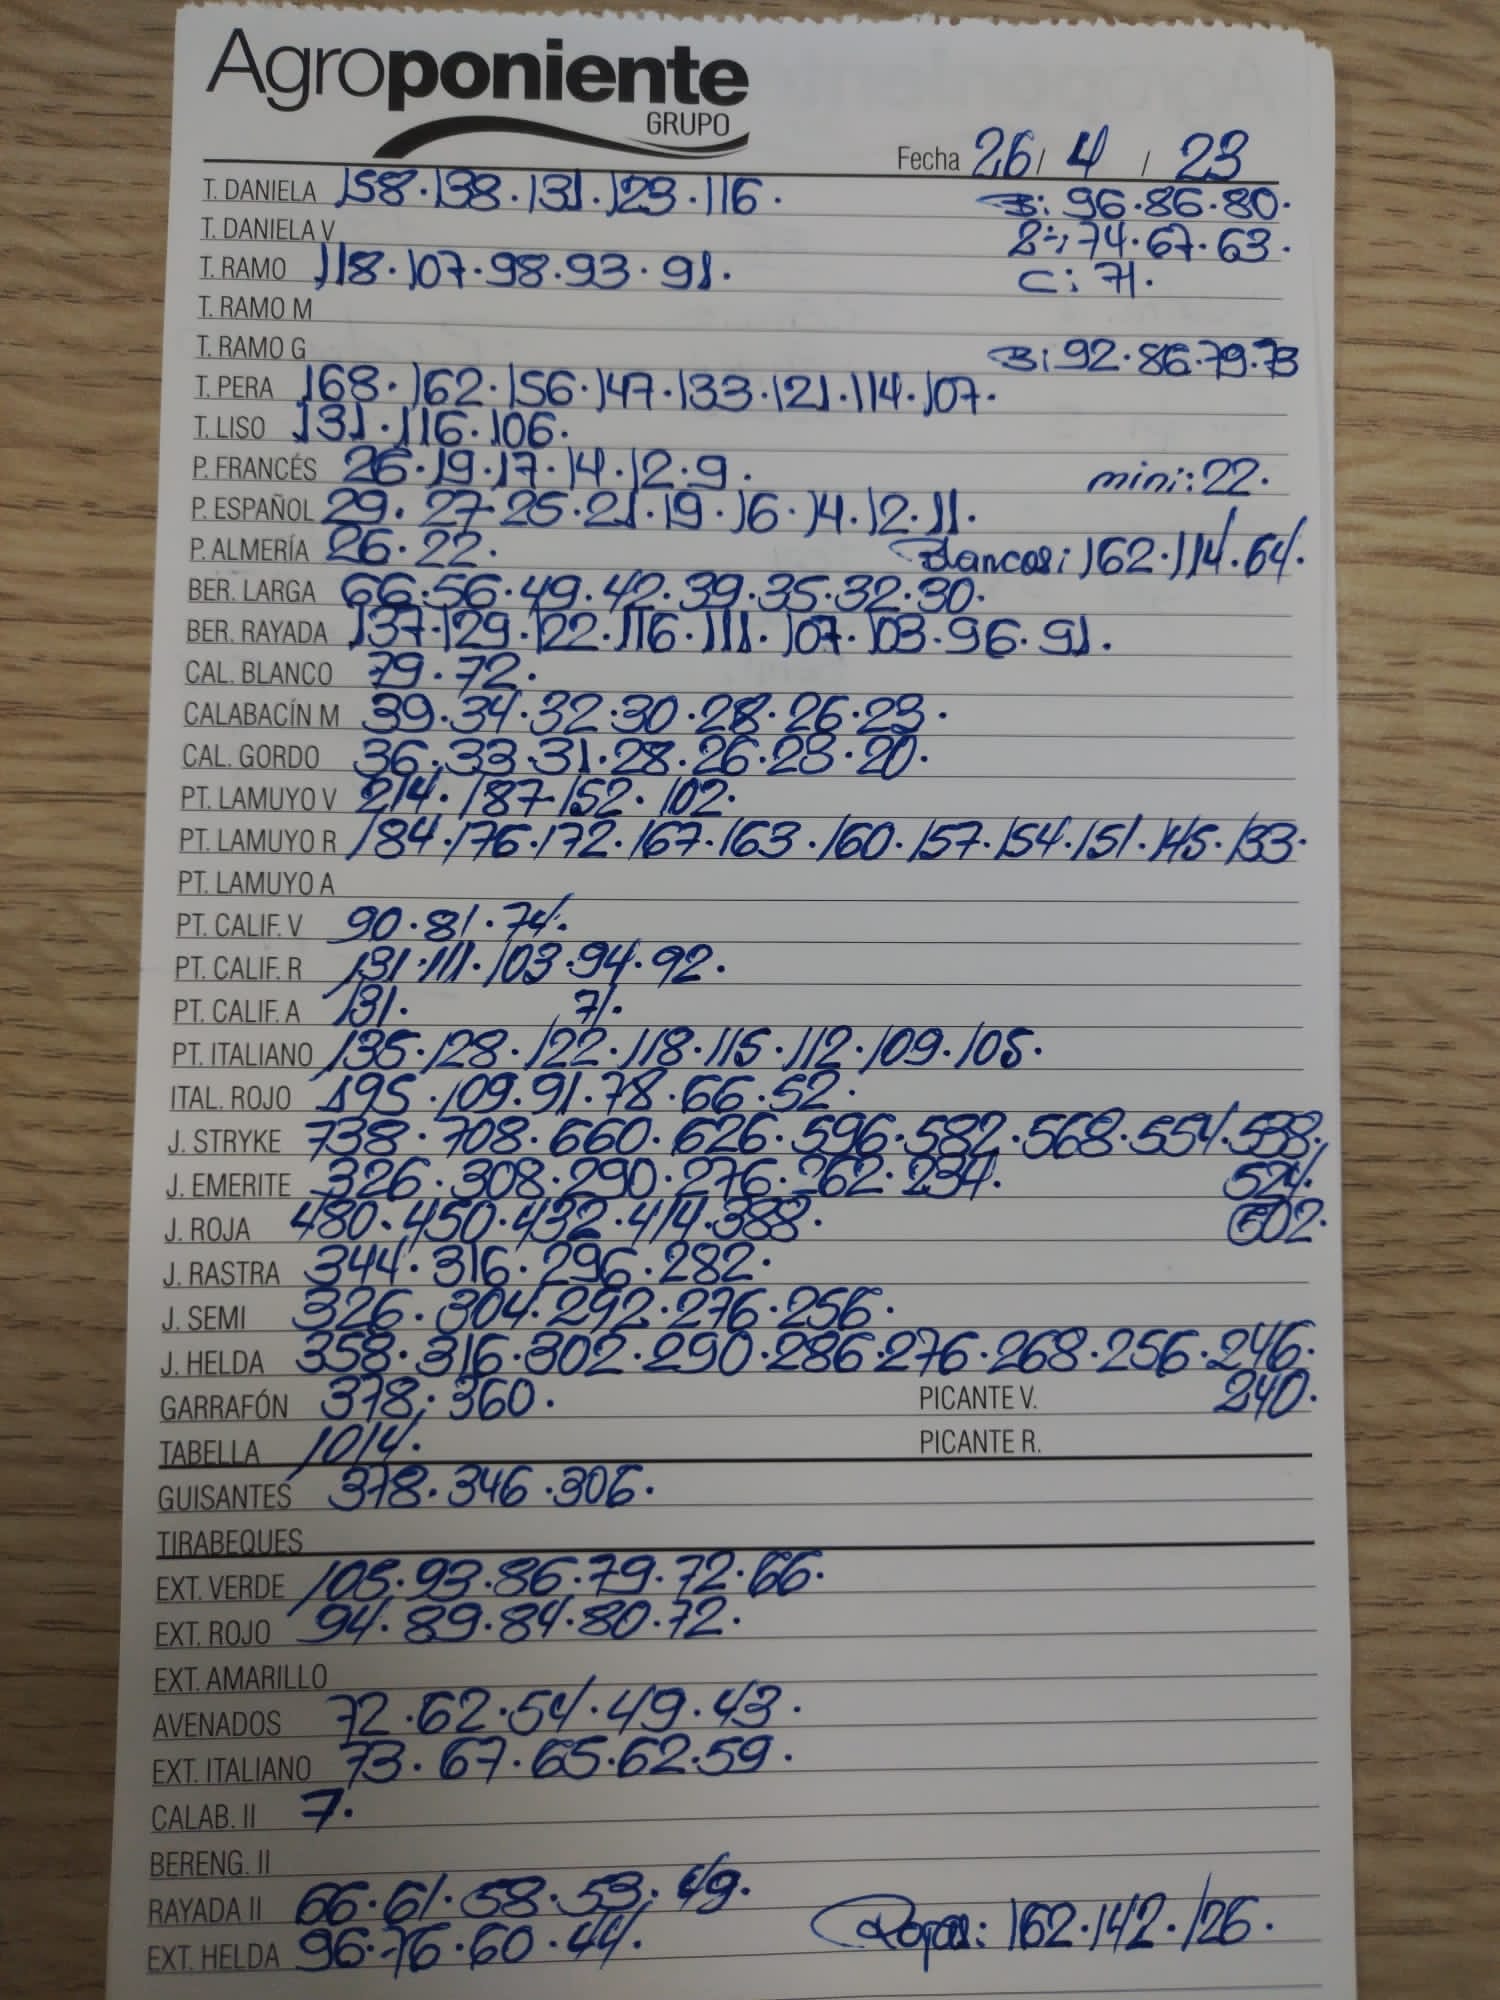 Agroponiente
GRUPO
Fecha 26 / 4 / 23
T. DANIELA 158·138·131·123·116· B: 96·86·80·
T. DANIELA V 2ª: 74·67·63·
T. RAMO 118·107·98·93·91· C: 71·
T. RAMO M
T. RAMO G B: 92·86·79·73
T. PERA 168·162·156·147·133·121·114·107·
T. LISO 131·116·106·
P. FRANCÉS 26·19·17·14·12·9· mini: 22·
P. ESPAÑOL 29·27·25·21·19·16·14·12·11·
P. ALMERÍA 26·22· Blancas: 162·114·64·
BER. LARGA 66·56·49·42·39·35·32·30·
BER. RAYADA 137·129·122·116·111·107·103·96·91·
CAL. BLANCO 79·72·
CALABACÍN M 39·34·32·30·28·26·23·
CAL. GORDO 36·33·31·28·26·23·20·
PT. LAMUYO V 214·187·152·102·
PT. LAMUYO R 184·176·172·167·163·160·157·154·151·145·133·
PT. LAMUYO A
PT. CALIF. V 90·81·74·
PT. CALIF. R 131·111·103·94·92·
PT. CALIF. A 131· 71·
PT. ITALIANO 135·128·122·118·115·112·109·105·
ITAL. ROJO 195·109·91·78·66·52·
J. STRYKE 738·708·660·626·596·582·568·554·538·
J. EMERITE 326·308·290·276·262·234· 524·
J. ROJA 480·450·432·414·388· 502·
J. RASTRA 344·316·296·282·
J. SEMI 326·304·292·276·256·
J. HELDA 358·316·302·290·286·276·268·256·246·
GARRAFÓN 378·360· PICANTE V. 240·
TABELLA 1014· PICANTE R.
GUISANTES 378·346·306·
TIRABEQUES
EXT. VERDE 105·93·86·79·72·66·
EXT. ROJO 94·89·84·80·72·
EXT. AMARILLO
AVENADOS 72·62·54·49·43·
EXT. ITALIANO 73·67·65·62·59·
CALAB. II 7·
BERENG. II
RAYADA II 66·61·58·53·49·
EXT. HELDA 96·76·60·44· Rojas: 162·142·126·